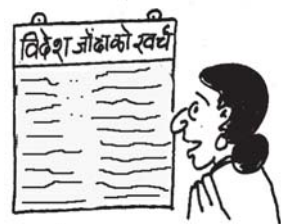 विदेश जाँदाको खर्च